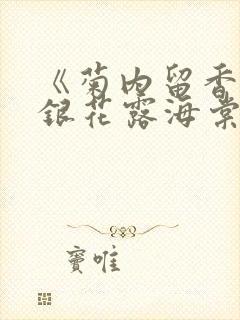 《菊内留香
银花露海棠
窦唯